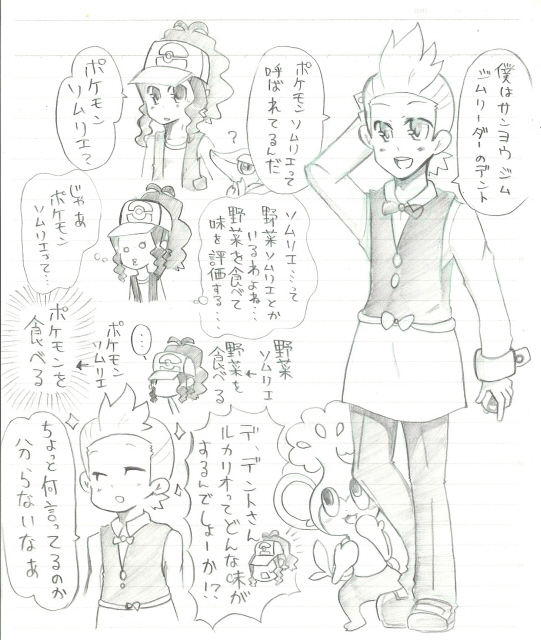 僕はサンヨウジム
ジムリーダーのデント
ポケモン
ソムリエって
呼ばれてるんだ
ポケモン
ソムリエ?
?
ソムリエ…って
野菜ソムリエとか
いるわよね…
野菜を食べて
味を評価する…
じゃあ
ポケモン
ソムリエって…
野菜
ソムリエ
↓
野菜を
食べる
…
ポケモン
ソムリエ
↓
ポケモンを
食べる
デ、デントさん
ルカリオってどんな味が
するんでしょーか!?
ちょっと何言ってるのか
分らないなぁ